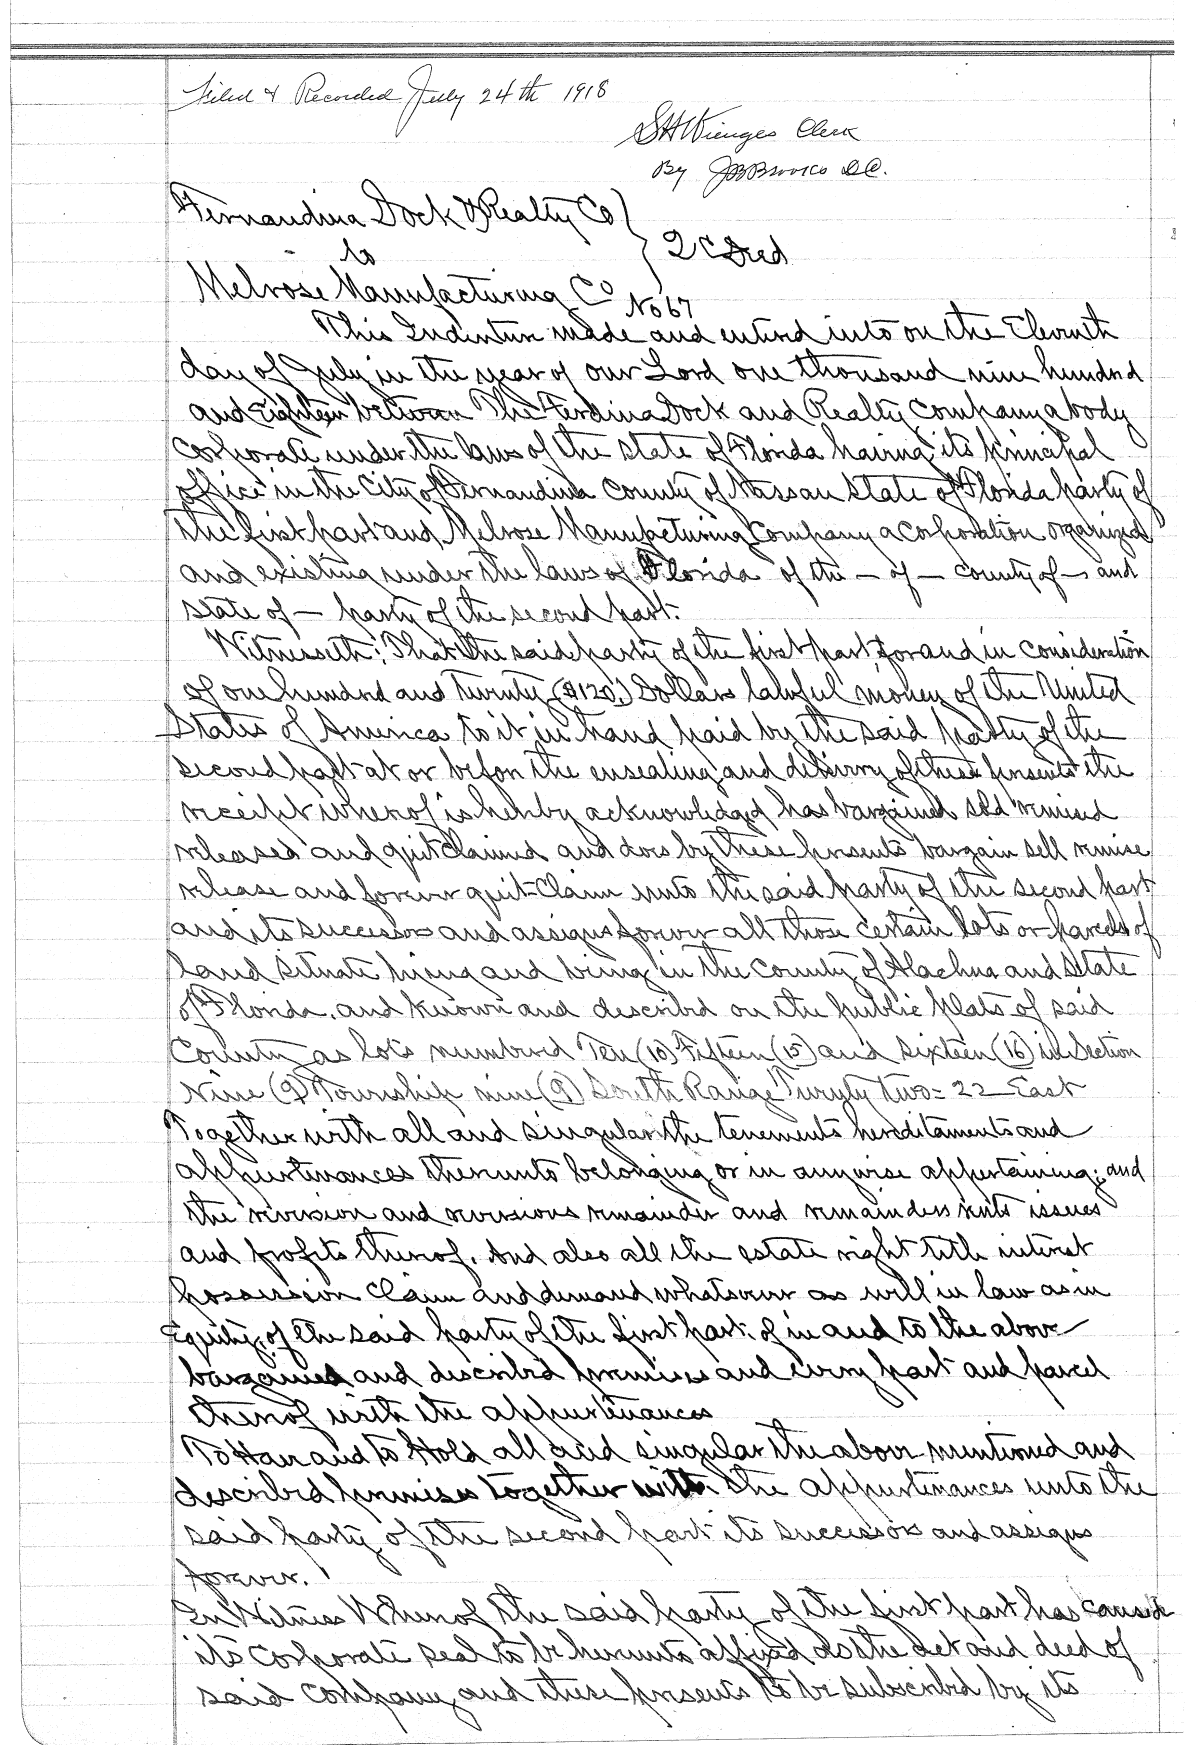 Filed & Recorded July 24th 1918
S H Wienges Clerk
By J B Brooks D.C.
Fernandina Dock & Realty Co
to
2 C Deed
Melrose Manufacturing Co
No 67
This Indenture made and entered into on the Eleventh
day of July in the year of our Lord one thousand nine hundred
and Eighteen between The Ferdina Dock and Realty Company a body
corporate under the laws of the State of Florida having its principal
office in the City of Fernandina County of Nassau State of Florida party of
the first part and Melrose Manufacturing Company a corporation organized
and existing under the laws of Florida of the — of — county of — and
State of — party of the second part.
Witnesseth: That the said party of the first part, for and in consideration
of one hundred and twenty ($120.) Dollars lawful money of the United
States of America to it in hand paid by the said party of the
second part at or before the ensealing and delivery of these presents the
receipt whereof is hereby acknowledged has bargained sold remised
released and quitclaimed and does by these presents bargain sell remise
release and forever quit-claim unto the said party of the second part
and its successors and assigns forever all those certain lots or parcels of
land situate lying and being in the county of Alachua and State
of Florida, and known and described on the public plats of said
County as lots numbered Ten (10) Fifteen (15) and sixteen (16) in Section
Nine (9) Township nine (9) South Range Twenty two = 22 East
Together with all and singular the tenements hereditaments and
appurtenances thereunto belonging or in anywise appertaining; and
the reversion and reversions remainder and remainders rents issues
and profits thereof. And also all the estate right title interest
possession claim and demand whatsoever as well in law as in
Equity, of the said party of the first part, of in and to the above
bargained and described premises and every part and parcel
thereof with the appurtenances
To Have and to Hold all and singular the above mentioned and
described premises together with the appurtenances unto the
said party of the second part its successors and assigns
forever.
In Witness Whereof the said party of the first part has caused
its corporate seal to be hereunto affixed as the act and deed of
said company and these presents to be subscribed by its